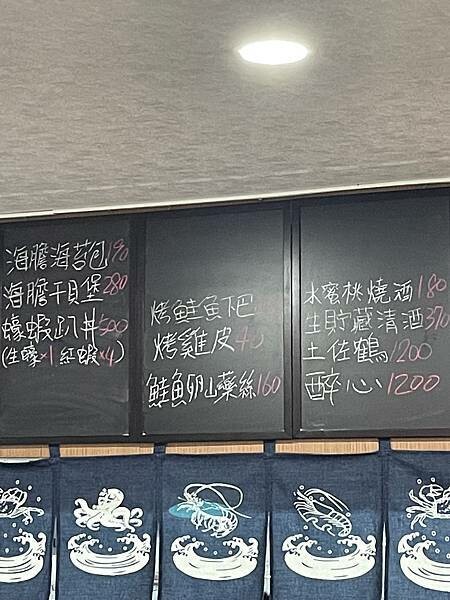 海膽海苔包190
海膽干貝堡280
蠔蝦趴丼500
(生蠔×1 紅蝦×4)
烤鮭魚下巴
烤雞皮40
鮭魚卵山藥絲160
水蜜桃燒酒180
生貯蔵清酒370
土佐鶴1200
醉心1200